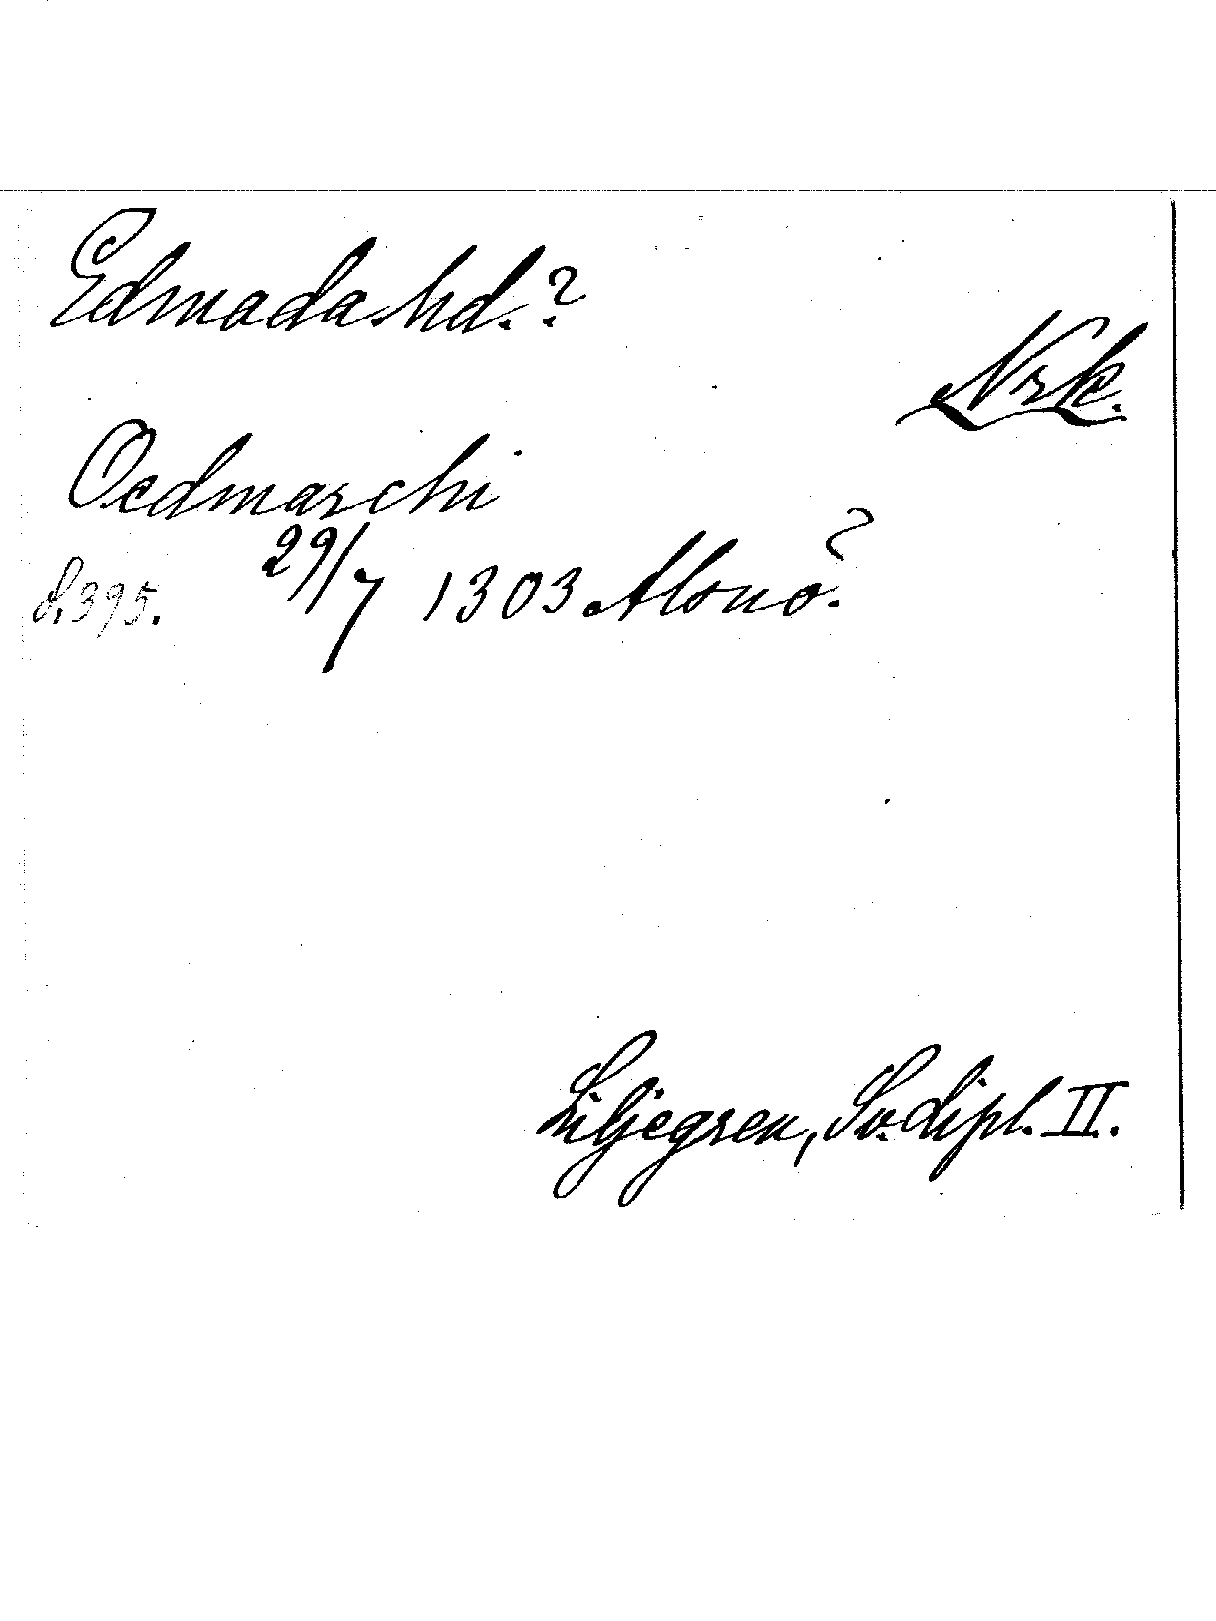 Edmada hd.?
Nrk.
Oedmarchi
29/7 1303 Alsnö?
s. 395.
Liljegren, Sv. dipl. II.